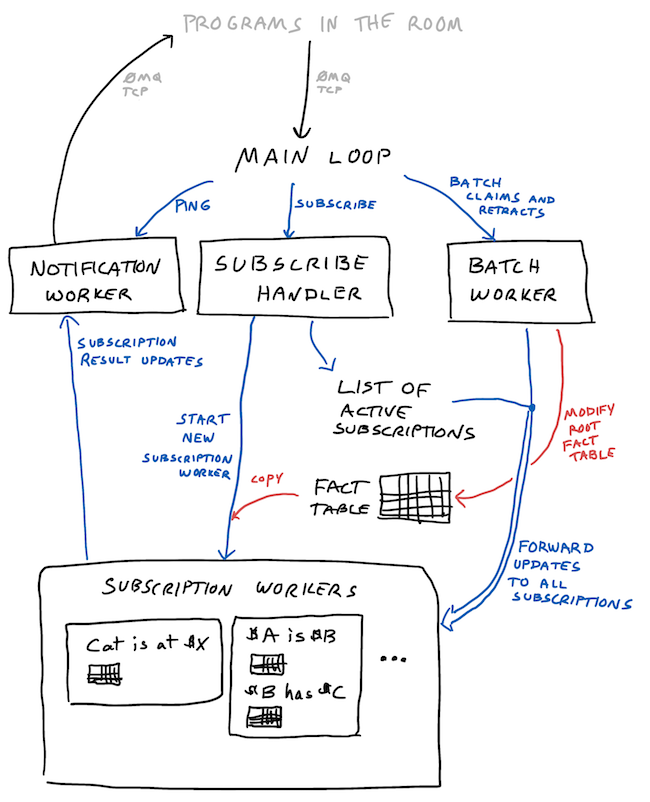 PROGRAMS IN THE ROOM
ØMQ
TCP
ØMQ
TCP
MAIN LOOP
PING
SUBSCRIBE
BATCH
CLAIMS AND
RETRACTS
NOTIFICATION
WORKER
SUBSCRIBE
HANDLER
BATCH
WORKER
SUBSCRIPTION
RESULT UPDATES
LIST OF
ACTIVE
SUBSCRIPTIONS
START
NEW
SUBSCRIPTION
WORKER
MODIFY
ROOT
FACT
TABLE
COPY
FACT
TABLE
FORWARD
UPDATES
TO ALL
SUBSCRIPTIONS
SUBSCRIPTION WORKERS
Cat is at $X
$A is $B
$B has $C
...